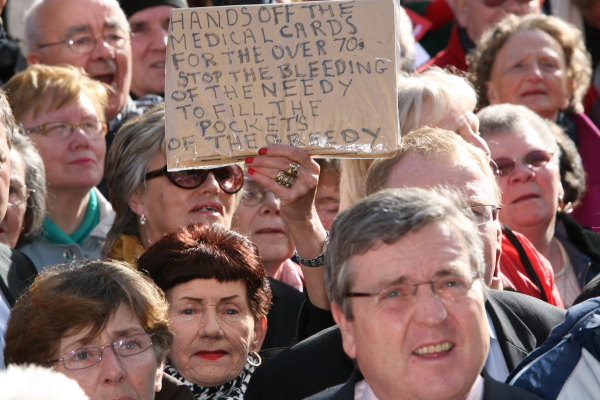 HANDS OFF THE
MEDICAL CARDS
FOR THE OVER 70s
STOP THE BLEEDING
OF THE NEEDY
TO FILL THE
POCKETS
OF THE GREEDY